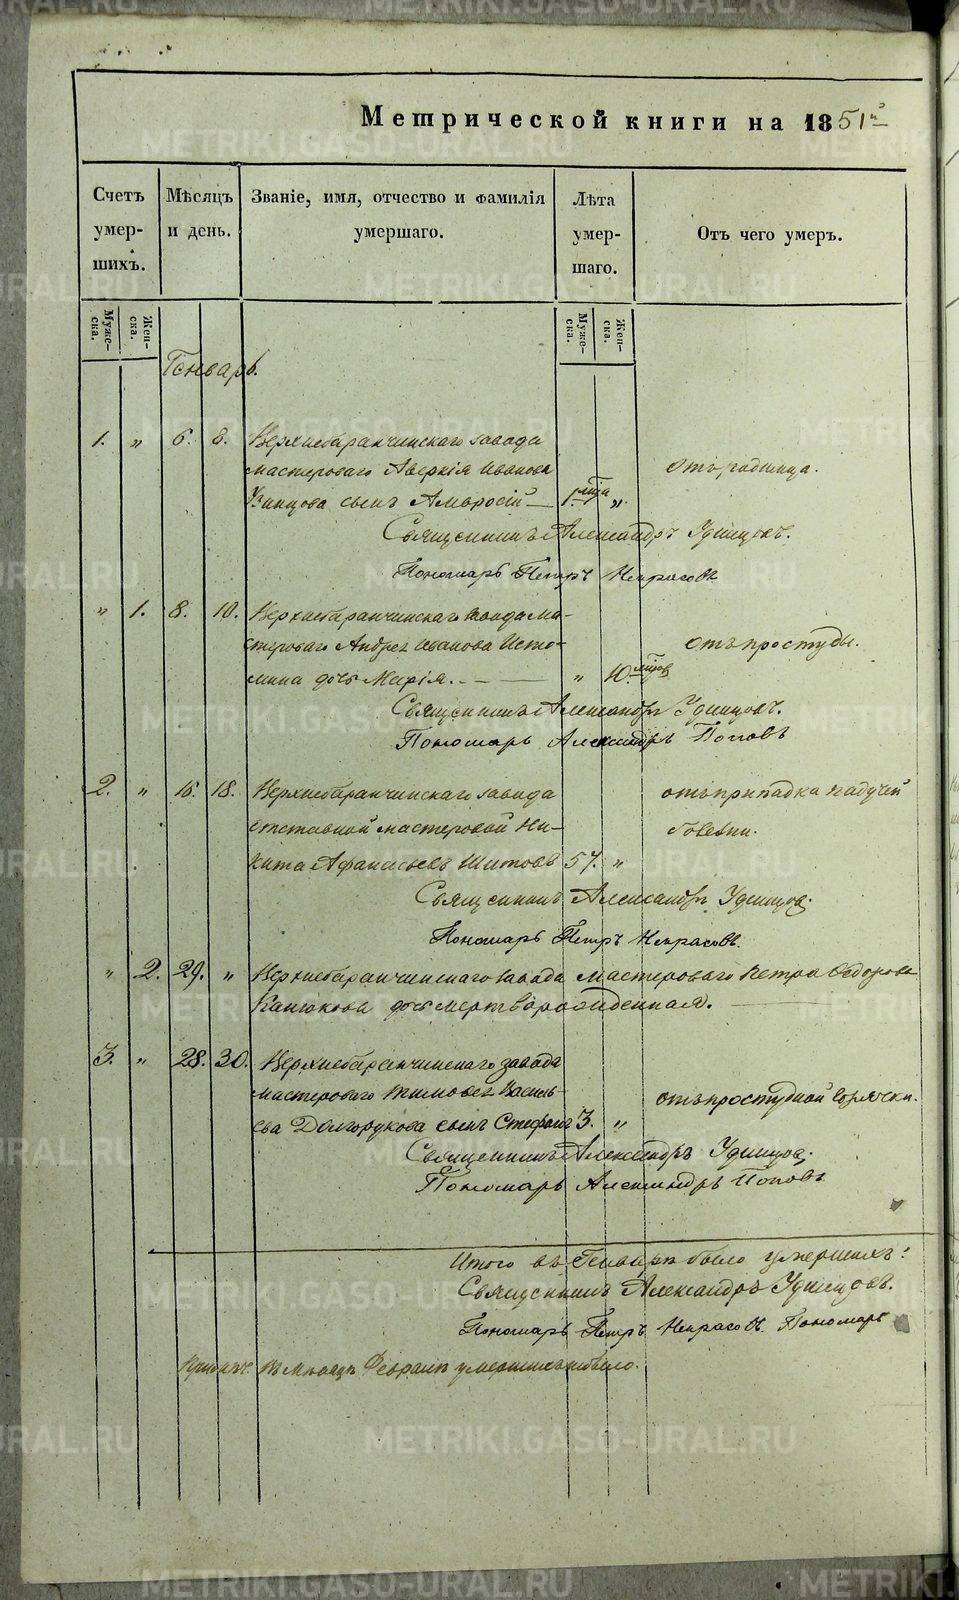 Метрической книги на 1851й
Счетъ умершихъ.
Мѣсяцъ и день.
Званіе, имя, отчество и фамилія умершаго.
Лѣта умершаго.
Отъ чего умеръ.
Мужеска. Женска.
Мужеска. Женска.
Генварь.
1. „ 6. 8. Верхнебаранчинскаго завода
мастероваго Аверкія Иванова
сынъ Амвросій — 1. мца „ отъ родимца.
Священникъ Александръ Удинцовъ.
Пономарь Петръ Некрасовъ
„ 1. 8. 10. Верхнебаранчинскаго завода ма-
стероваго Андрея Иванова Исто-
мина дочь Марія. — „ 10. мцов отъ простуды.
Священникъ Александръ Удинцовъ.
Пономарь Александръ Поповъ
2. „ 15. 18. Верхнебаранчинскаго завода отъ припадка падучей
отставной мастеровой Ни- болезни.
кита Афанасьевъ Шитовъ 57. „
Священникъ Александръ Удинцовъ.
Пономарь Петръ Некрасовъ.
„ 2. 29. „ Верхнебаранчинскаго завода мастероваго Петра Ѳедорова
дочь мертворожденная.
3. „ 28. 30. Верхнебаранчинскаго завода
мастероваго Тимофея Василь- отъ простудной горячки.
ева Долгорукова сынъ Стефанъ 3. „
Священникъ Александръ Удинцовъ.
Пономарь Александръ Поповъ
Итого въ Генварѣ было умершихъ:
Священникъ Александръ Удинцовъ.
Пономарь Петръ Некрасовъ. Пономарь
Въ мѣсяцѣ Февралѣ умершихъ небыло.
METRIKI.GASO-URAL.RU